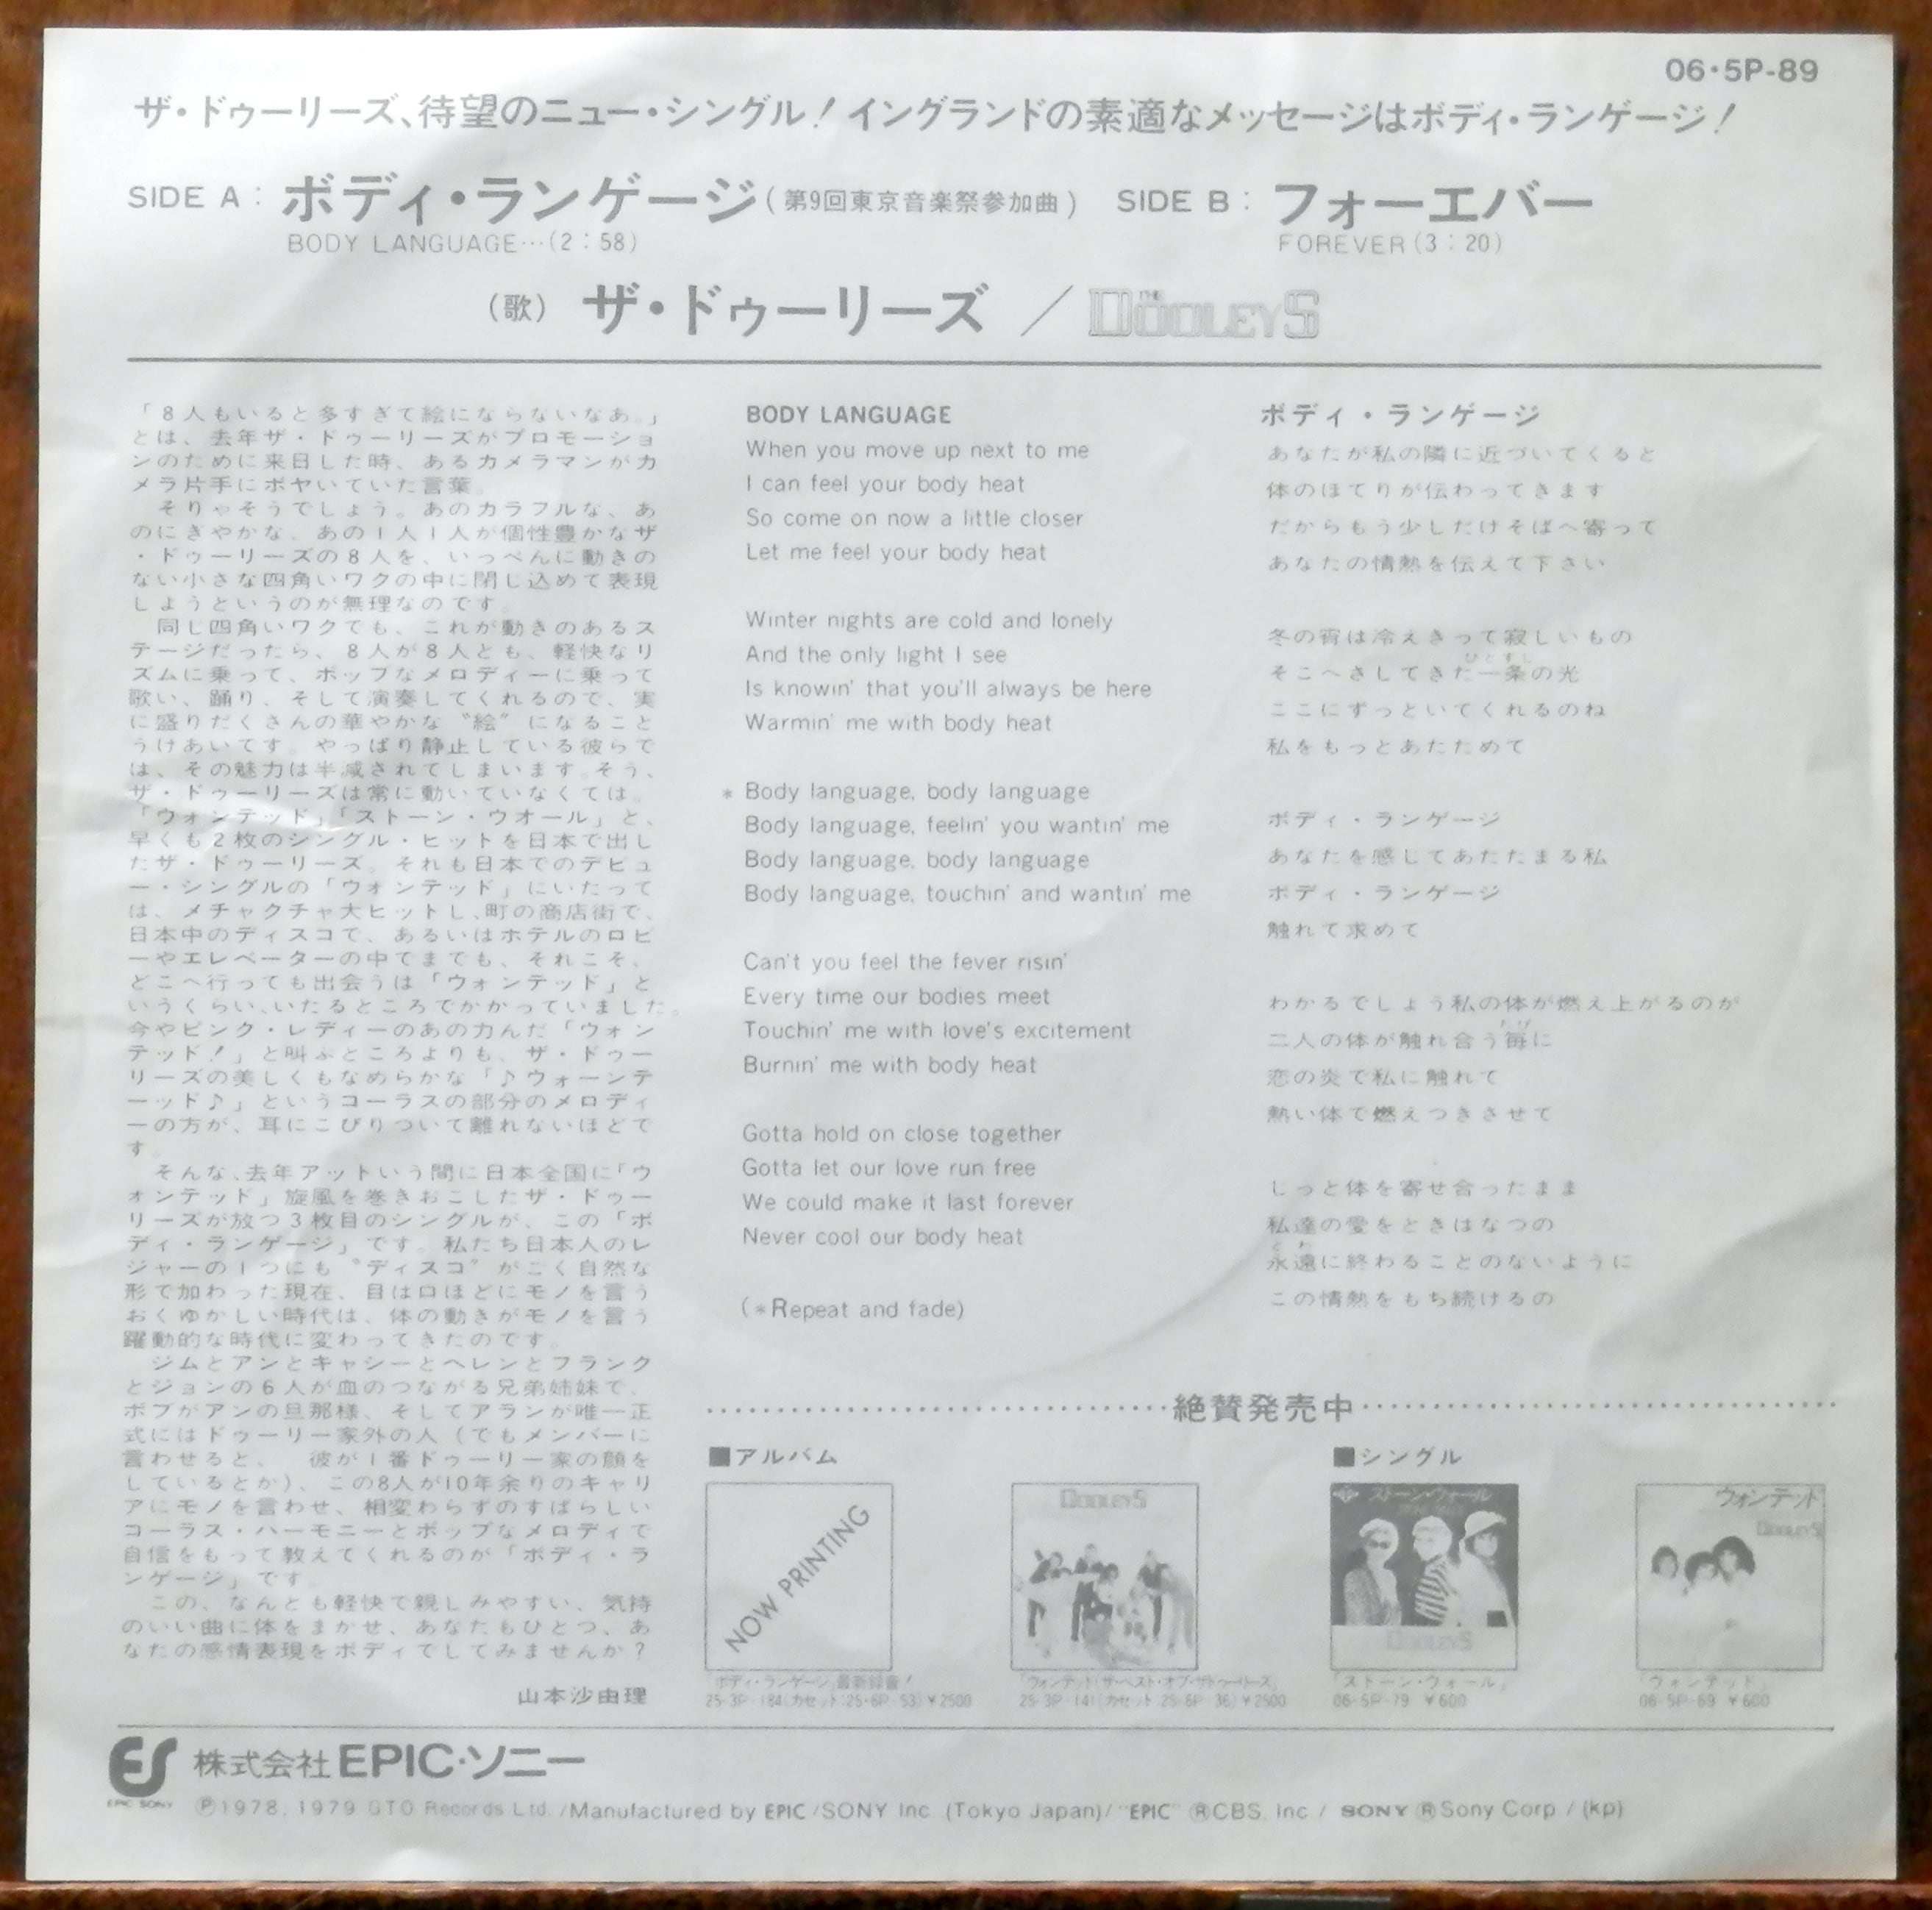 06・5P-89
ザ・ドゥーリーズ、待望のニュー・シングル！イングランドの素適なメッセージはボディ・ランゲージ！
SIDE A：ボディ・ランゲージ（第9回東京音楽祭参加曲） SIDE B：フォーエバー
BODY LANGUAGE…(2：58) FOREVER(3：20)
（歌）ザ・ドゥーリーズ／THE DOOLEYS
「8人もいると多すぎて絵にならないなあ。」
とは、去年ザ・ドゥーリーズがプロモーショ
ンのために来日した時、あるカメラマンがカ
メラ片手にボヤいていた言葉。
そりゃそうでしょう。あのカラフルな、あ
のにぎやかな、あの1人1人が個性豊かなザ
・ドゥーリーズの8人を、いっぺんに動きの
ない小さな四角いワクの中に閉じ込めて表現
しようというのが無理なのです。
同じ四角いワクでも、これが動きのあるス
テージだったら、8人が8人とも、軽快なリ
ズムに乗って、ポップなメロディーに乗って
歌い、踊り、そして演奏してくれるので、実
に盛りだくさんの華やかな〝絵〟になること
うけあいです。やっぱり静止している彼らで
は、その魅力は半減されてしまいます。そう、
ザ・ドゥーリーズは常に動いていなくては。
「ウォンテッド」「ストーン・ウオール」と、
早くも2枚のシングル・ヒットを日本で出し
たザ・ドゥーリーズ。それも日本でのデビュ
ー・シングルの「ウォンテッド」にいたって
は、メチャクチャ大ヒットし、町の商店街で、
日本中のディスコで、あるいはホテルのロビ
ーやエレベーターの中でまでも、それこそ、
どこへ行っても出会うは「ウォンテッド」と
いうくらい、いたるところでかかっていました。
今やピンク・レディーのあの力んだ「ウォン
テッド！」と叫ぶところよりも、ザ・ドゥー
リーズの美しくもなめらかな「♪ウォーンテ
ーッド♪」というコーラスの部分のメロディ
ーの方が、耳にこびりついて離れないほどで
す。
そんな、去年アットいう間に日本全国に「ウ
ォンテッド」旋風を巻きおこしたザ・ドゥー
リーズが放つ3枚目のシングルが、この「ボ
ディ・ランゲージ」です。私たち日本人のレ
ジャーの1つにも〝ディスコ〟がごく自然な
形で加わった現在、目は口ほどにモノを言う
おくゆかしい時代は、体の動きがモノを言う
躍動的な時代に変わってきたのです。
ジムとアンとキャシーとヘレンとフランク
とジョンの6人が血のつながる兄弟姉妹で、
ボブがアンの旦那様、そしてアランが唯一正
式にはドゥーリー家外の人（でもメンバーに
言わせると、 彼が1番ドゥーリー家の顔を
しているとか）、この8人が10年余りのキャリ
アにモノを言わせ、相変わらずのすばらしい
コーラス・ハーモニーとポップなメロディで
自信をもって教えてくれるのが「ボディ・ラ
ンゲージ」です。
この、なんとも軽快で親しみやすい、気持
のいい曲に体をまかせ、あなたもひとつ、あ
なたの感情表現をボディでしてみませんか？
山本沙由理
BODY LANGUAGE
When you move up next to me
I can feel your body heat
So come on now a little closer
Let me feel your body heat
Winter nights are cold and lonely
And the only light I see
Is knowin' that you'll always be here
Warmin' me with body heat
＊Body language, body language
Body language, feelin' you wantin' me
Body language, body language
Body language, touchin' and wantin' me
Can't you feel the fever risin'
Every time our bodies meet
Touchin' me with love's excitement
Burnin' me with body heat
Gotta hold on close together
Gotta let our love run free
We could make it last forever
Never cool our body heat
(＊Repeat and fade)
ボディ・ランゲージ
あなたが私の隣に近づいてくると
体のほてりが伝わってきます
だからもう少しだけそばへ寄って
あなたの情熱を伝えて下さい
冬の宵は冷えきって寂しいもの
ひとすじ
そこへさしてきた一条の光
ここにずっといてくれるのね
私をもっとあたためて
ボディ・ランゲージ
あなたを感じてあたたまる私
ボディ・ランゲージ
触れて求めて
わかるでしょう私の体が燃え上がるのが
たび
二人の体が触れ合う毎に
恋の炎で私に触れて
熱い体で燃えつきさせて
じっと体を寄せ合ったまま
私達の愛をときはなつの
とわ
永遠に終わることのないように
この情熱をもち続けるの
絶賛発売中
■アルバム ■シングル
NOW PRINTING
DOOLEYS
ストーン・ウォール
DOOLEYS
ウォンテッド
DOOLEYS
「ボディ・ランゲージ」最新録音！
25・3P-184(カセット：25・6P-53)￥2500
「ウォンテッド(ザ・ベスト・オブ・ザ・ドゥーリーズ)」
25・3P-141(カセット：25・6P-36)￥2500
「ストーン・ウォール」
06・5P-79 ￥600
「ウォンテッド」
06・5P-69 ￥600
ES 株式会社EPIC・ソニー
EPIC SONY
Ⓟ1978, 1979 GTO Records Ltd. /Manufactured by EPIC /SONY Inc. (Tokyo Japan)/ "EPIC" ®CBS, Inc. / SONY ®Sony Corp. / (kp)